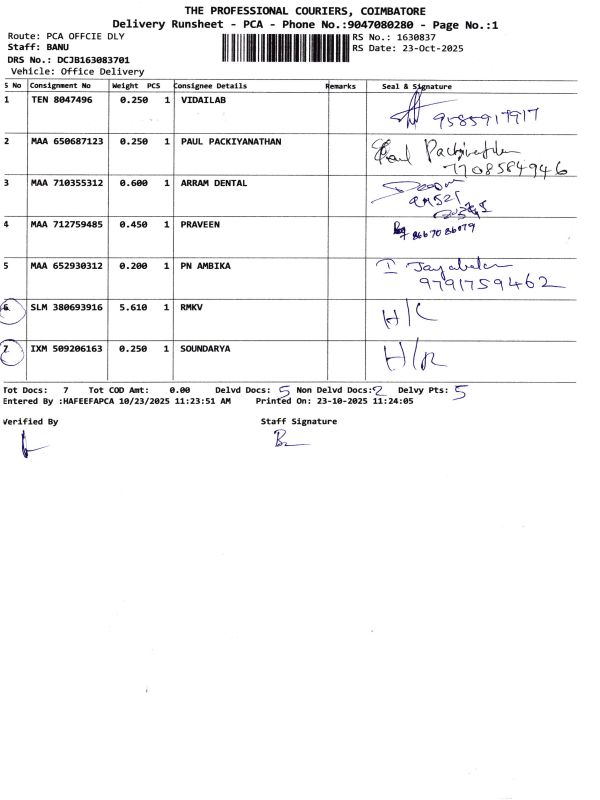 THE PROFESSIONAL COURIERS, COIMBATORE
Delivery Runsheet - PCA - Phone No.:9047080280 - Page No.:1
Route: PCA OFFCIE DLY RS No.: 1630837
Staff: BANU RS Date: 23-Oct-2025
DRS No.: DCJB163083701
Vehicle: Office Delivery
S No Consignment No Weight PCS Consignee Details Remarks Seal & Signature
1 TEN 8047496 0.250 1 VIDAILAB
9585917917
2 MAA 650687123 0.250 1 PAUL PACKIYANATHAN Paul
7708584946
3 MAA 710355312 0.600 1 ARRAM DENTAL
4 MAA 712759485 0.450 1 PRAVEEN
8667086079
5 MAA 652930312 0.200 1 PN AMBIKA I Jayabalan
9791759462
6 SLM 380693916 5.610 1 RMKV H/C
7 IXM 509206163 0.250 1 SOUNDARYA H/R
Tot Docs: 7 Tot COD Amt: 0.00 Delvd Docs: 5 Non Delvd Docs: 2 Delvy Pts: 5
Entered By :HAFEEFAPCA 10/23/2025 11:23:51 AM Printed On: 23-10-2025 11:24:05
Verified By Staff Signature